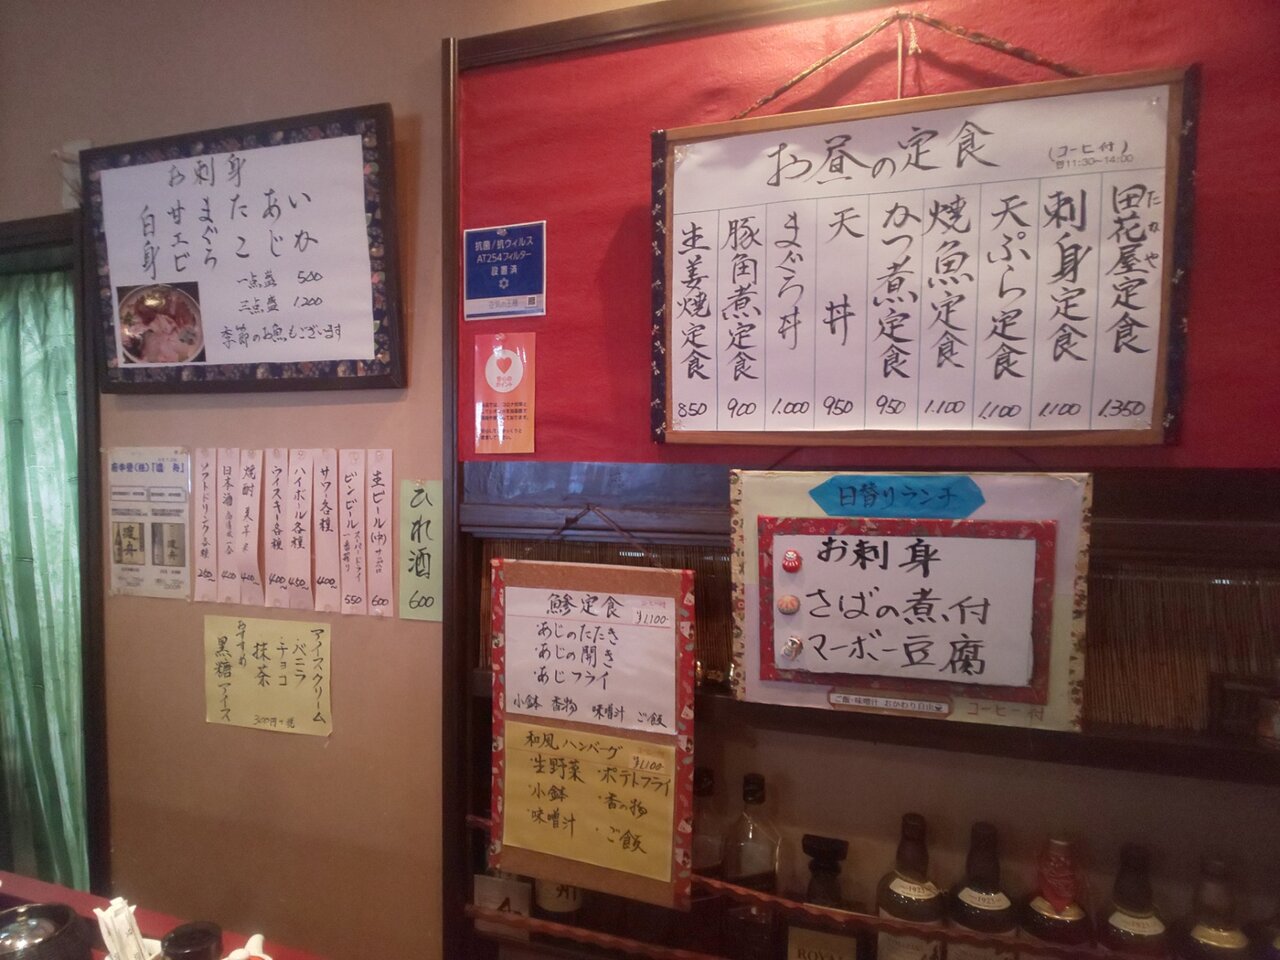 お刺身
いか
あじ
たこ
まぐろ
甘エビ
白身
一点盛 500
三点盛 1.200
季節のお魚もございます
抗菌/抗ウィルス
AT254フィルター
設置済
安心の
ポイント
お昼の定食
(コーヒー付)
11:30~14:00
たなや
田花屋定食 1.350
刺身定食 1.100
天ぷら定食 1.100
焼魚定食 1.100
かつ煮定食 950
天丼 950
まぐろ丼 1.000
豚角煮定食 900
生姜焼定食 850
日替りランチ
お刺身
さばの煮付
マーボー豆腐
ご飯・味噌汁 おかわり自由
コーヒー付
ひれ酒 600
生ビール(中) 600
ビンビール スーパードライ 一番搾り 550
サワー各種 400~
ハイボール各種 450~
ウイスキー各種 400~
焼酎 麦 芋 米 400~
日本酒 400
ソフトドリンク各種 250~
アイスクリーム
・バニラ
・チョコ
抹茶
おすすめ
黒糖アイス
300円+税
鯵定食 ¥1,100-
・あじのたたき
・あじの開き
・あじフライ
小鉢 香物 味噌汁 ご飯
和風ハンバーグ ¥1,100-
・生野菜 ・ポテトフライ
・小鉢 ・香の物
・味噌汁 ・ご飯
1923
1923
ROYAL